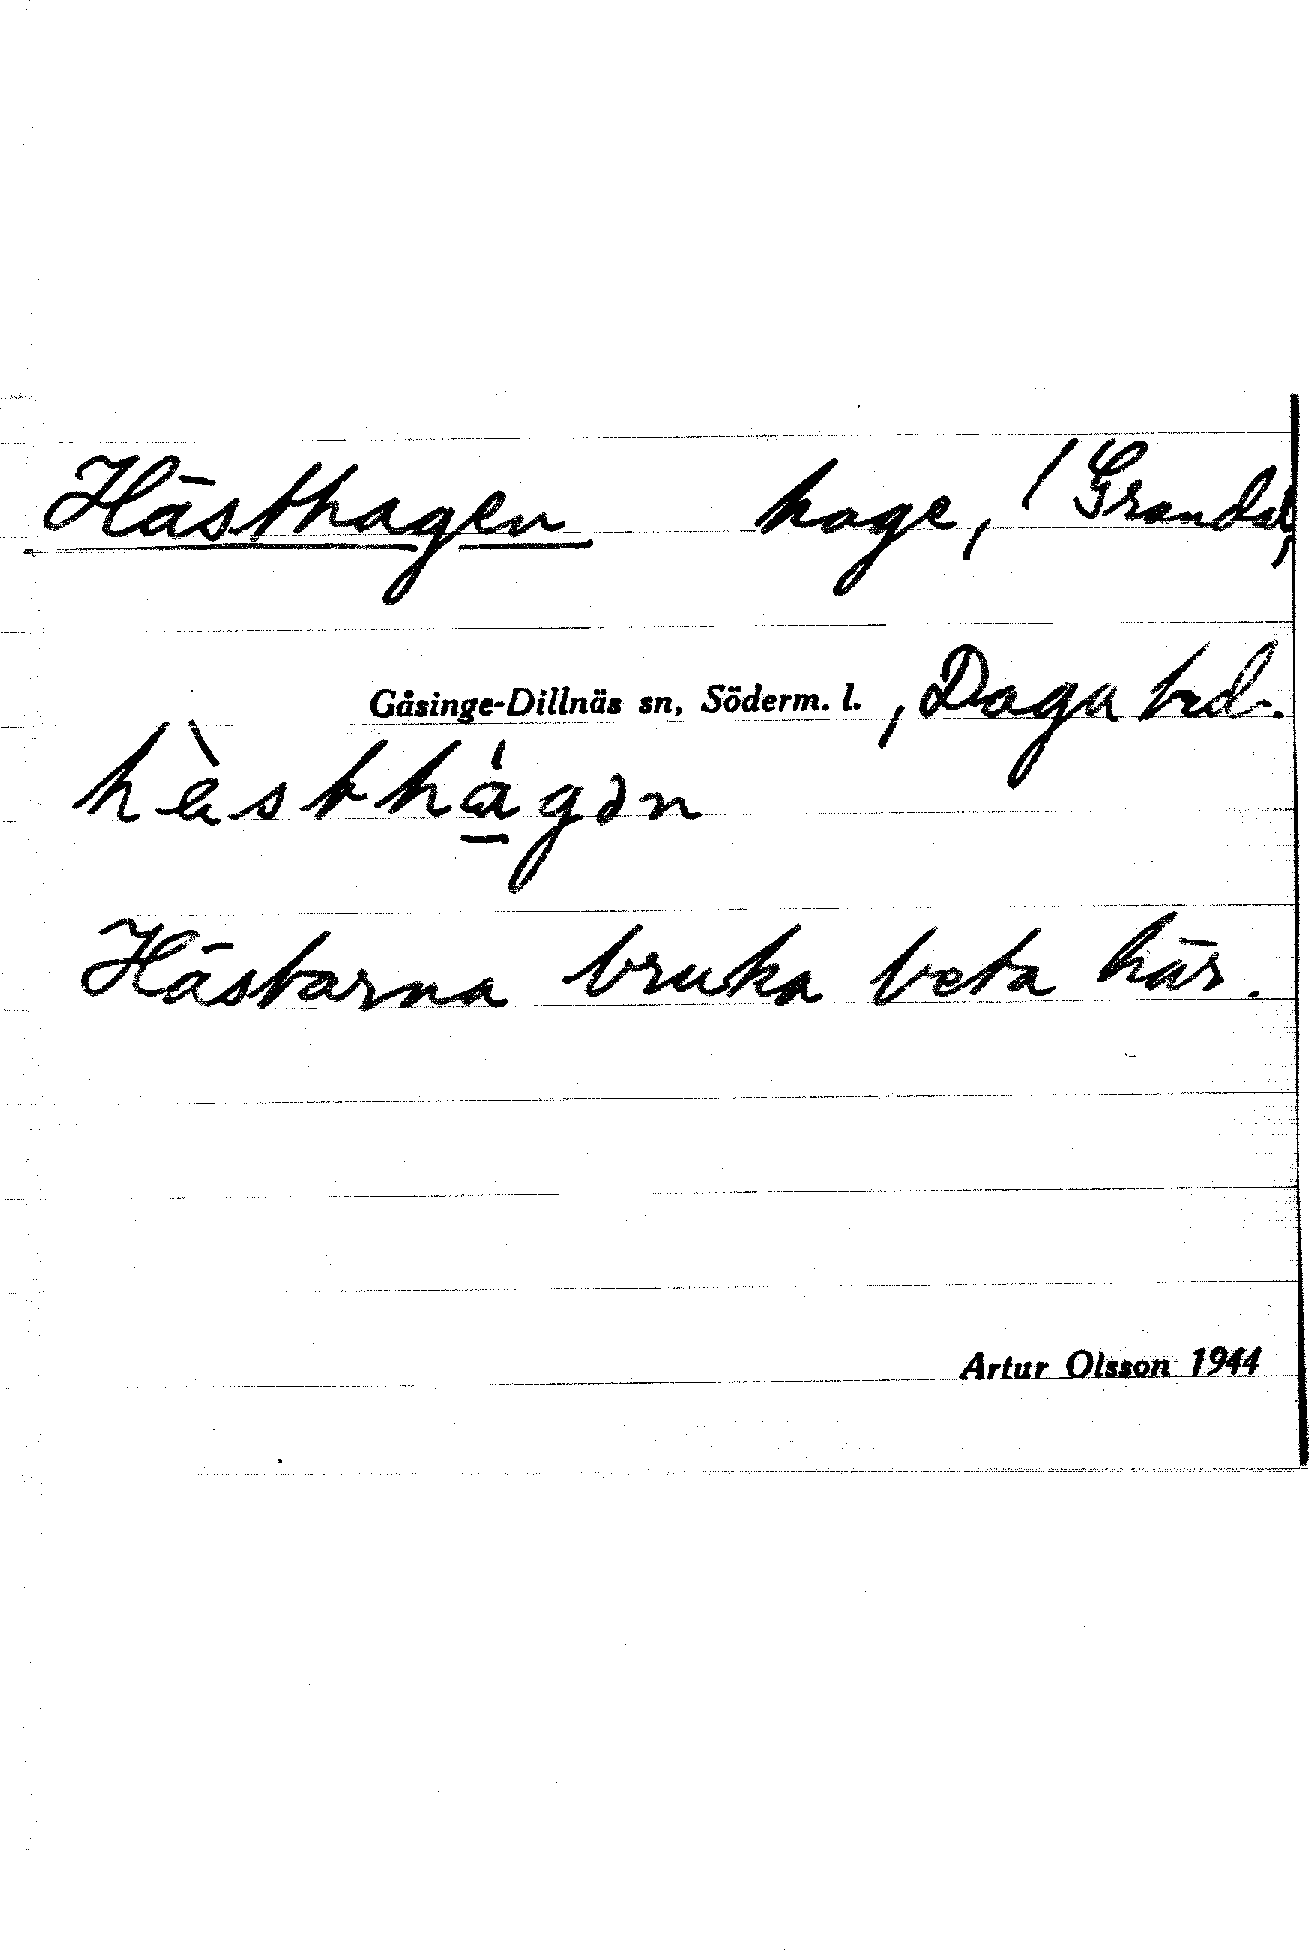 Hästhagen hage, / Grandal,
Gåsinge-Dillnäs sn, Söderm. l. , Daga hd.
hὲsthágən
Hästarna bruka beta här.
Artur Olsson 1944